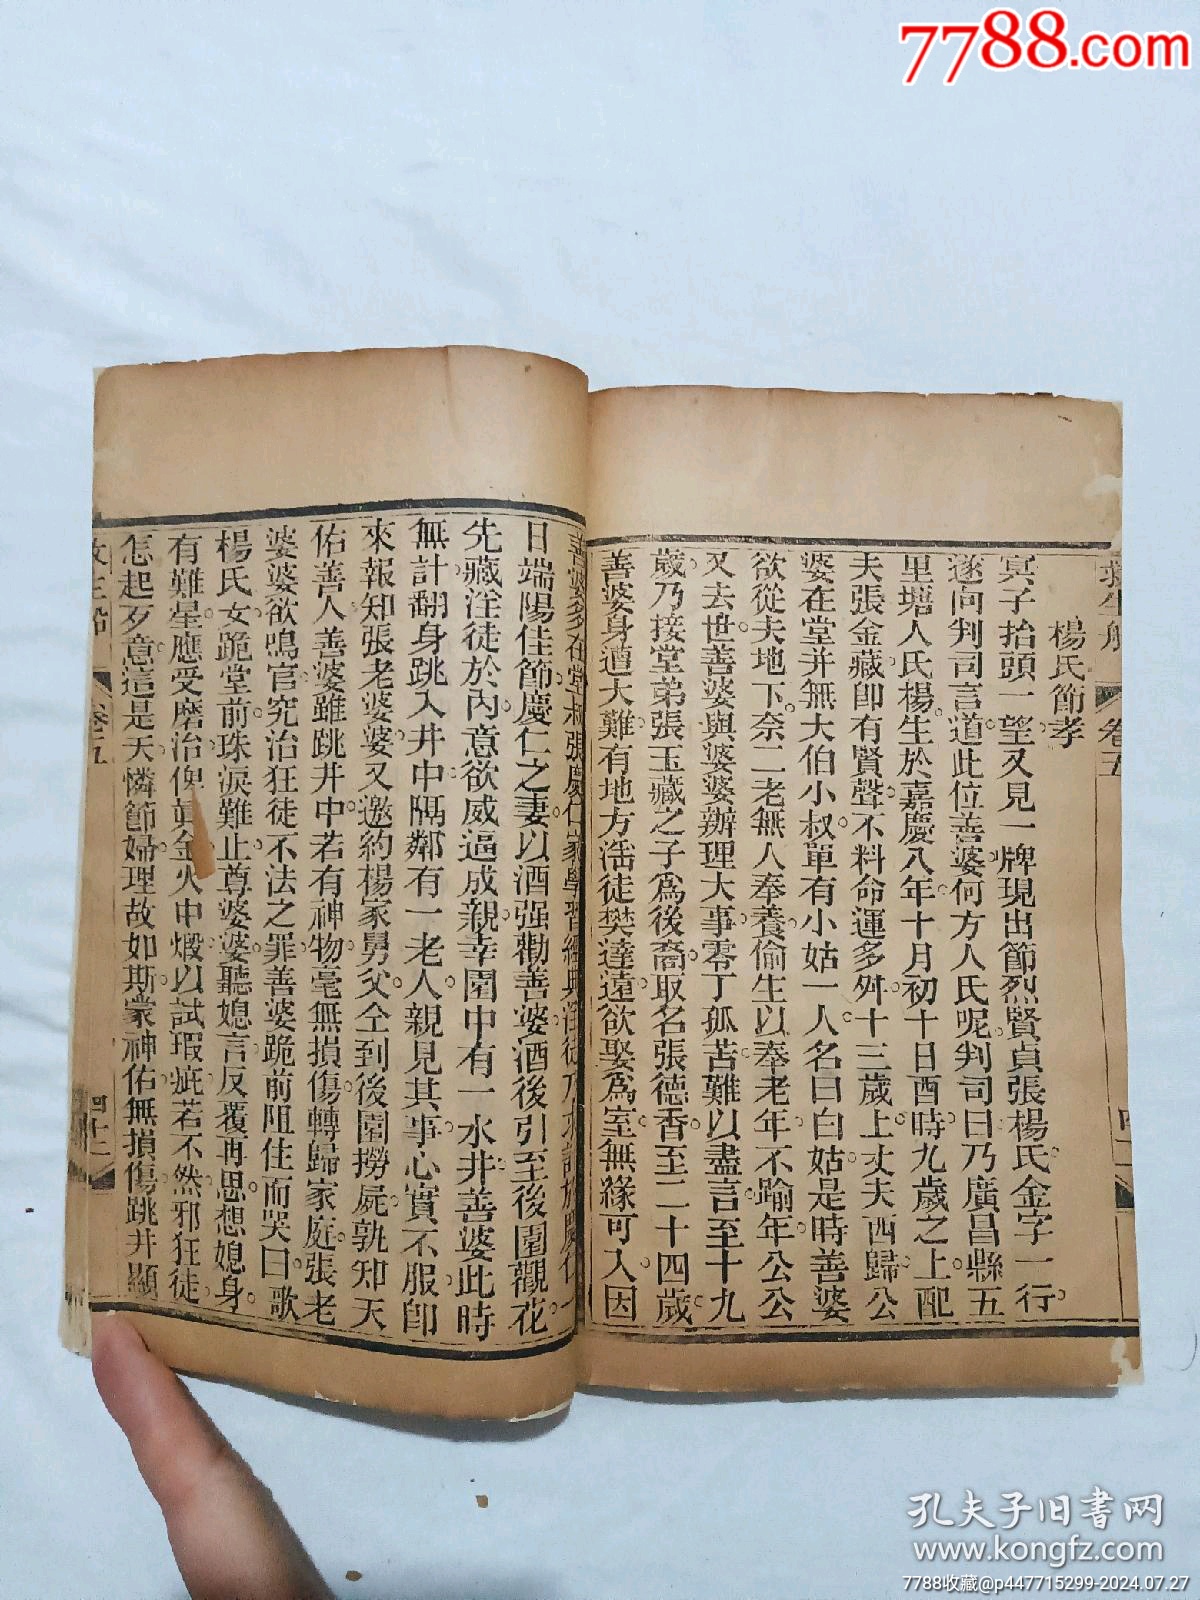 7788.com
救生船 卷五
楊氏節孝
冥子抬頭一望又見一牌現出節烈賢貞張楊氏金字一行
遂向判司言道此位善婆何方人氏呢判司曰乃廣昌縣五
里塘人氏楊生於嘉慶八年十月初十日酉時九歲之上配
夫張金藏卽有賢聲不料命運多舛十三歲上丈夫西歸公
婆在堂并無大伯小叔單有小姑一人名曰白姑是時善婆
欲從夫地下奈二老無人奉養偷生以奉老年不踰年公公
又去世善婆與婆婆辦理大事零丁孤苦難以盡言至十九
歲乃接堂弟張玉藏之子爲後裔取名張德香至二十四歲
善婆身遭大難有地方活徒樊達遠欲娶爲室無緣可入因
善婆多在堂叔張慶仁家學習經典狂徒乃求計於慶仁一
日端陽佳節慶仁之妻以酒强勸善婆酒後引至後園觀花
先藏淫徒於內意欲威逼成親幸園中有一水井善婆此時
無計翻身跳入井中隔鄰有一老人親見其事心實不服卽
來報知張老婆婆又邀約楊家舅父仝到後園撈屍孰知天
佑善人善婆雖跳井中若有神物毫無損傷轉歸家庭張老
婆婆欲鳴官究治狂徒不法之罪善婆跪前阻住而哭曰歌
楊氏女跪堂前珠淚難止尊婆婆聽媳言反覆再思想媳身
有難星應受磨治俾真金火中煅以試瑕疵若不然邪狂徒
怎起歹意這是天憐節婦理故如斯蒙神佑無損傷跳井顯
救生船 卷五 四十二
孔夫子旧书网
www.kongfz.com
7788收藏@p447715299-2024.07.27